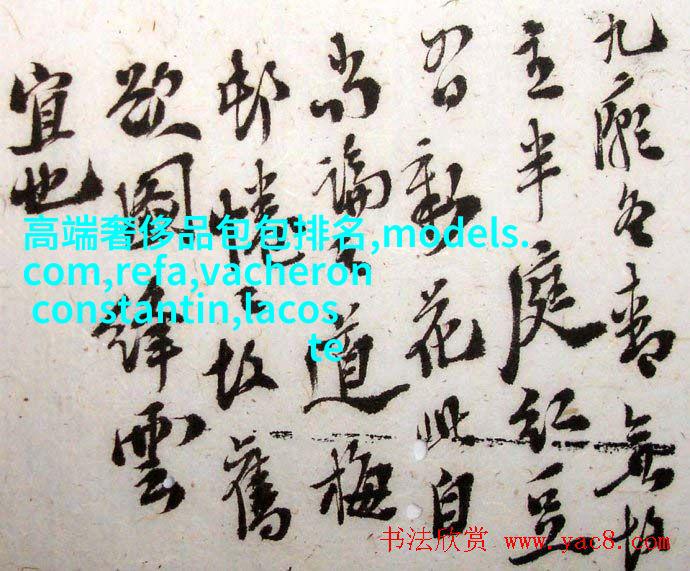 九冬青
主半庭紅豆
新花此自
尚論道梅
邨故舊
欲圖絳雲
宜也
高端奢侈品包包排名,models.
com,refa,vacheron
constantin,lacos
te
书法欣赏 www.yac8.com